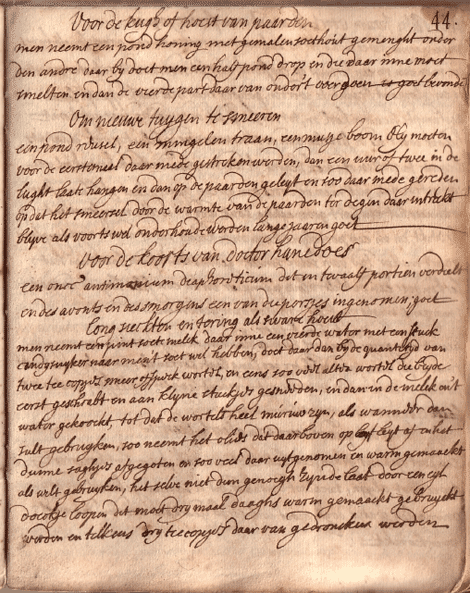 44.
Voor de kugh of hoest van paarden
men neemt een pond honing met gemalen soethout gemenght onder
den andre daar bij doet men een half pond drop en die daar inne moet
smelten en dan de vierde part daar van ondort overgoen is goet bevonde
Om nieuwe tuygen te smeeren
een pond reusel, een mingelen traan, een mutse boom oly moeten
voor de eerstemael daar mede gestreken werden, dan een uur of twee in de
lught laate hangen en dan op de paarden geleyt en soo daar mede gereden
op dat het smeersel door de warmte van de paarden ter degen daar intreckt
blyve als voorts wel onderhoude werden lange jaaren goet
Voor de koorts van doctor hanedoes
een once antimonium diaphoreticum dit in twaalf portien verdeelt
en des avonts en des morgens een van die portjes ingenomen, goet
Long siechten en tering als sware hoest
men neemt een pint soete melk daar inne een vierde water met een stuck
candysuyker naar men't soet wil hebben, doet daar dan by de quantityd van
twee tee copjes meer off geck wortel, en eens soo veel altea wortel die beyde
eerst geschrabt en aan klyne stuckjes gesneeden, en dan in de melk en't
water gekoockt, tot dat de wortels heel murw zyn, als wanneer dan
sult gebruyken, soo neemt het olies dat daar boven op leyt af en het
dunne saghjes afgegoten en soo veel daar uytgenomen en warm gemaackt
als wilt gebruyken, het selve niet dun genoegh zynde laat door een
doeckje loopen dit moet drymaal daaghs warm gemaackt gebruyckt
werden en telkens dry tee copjes daar van gedroncken werden